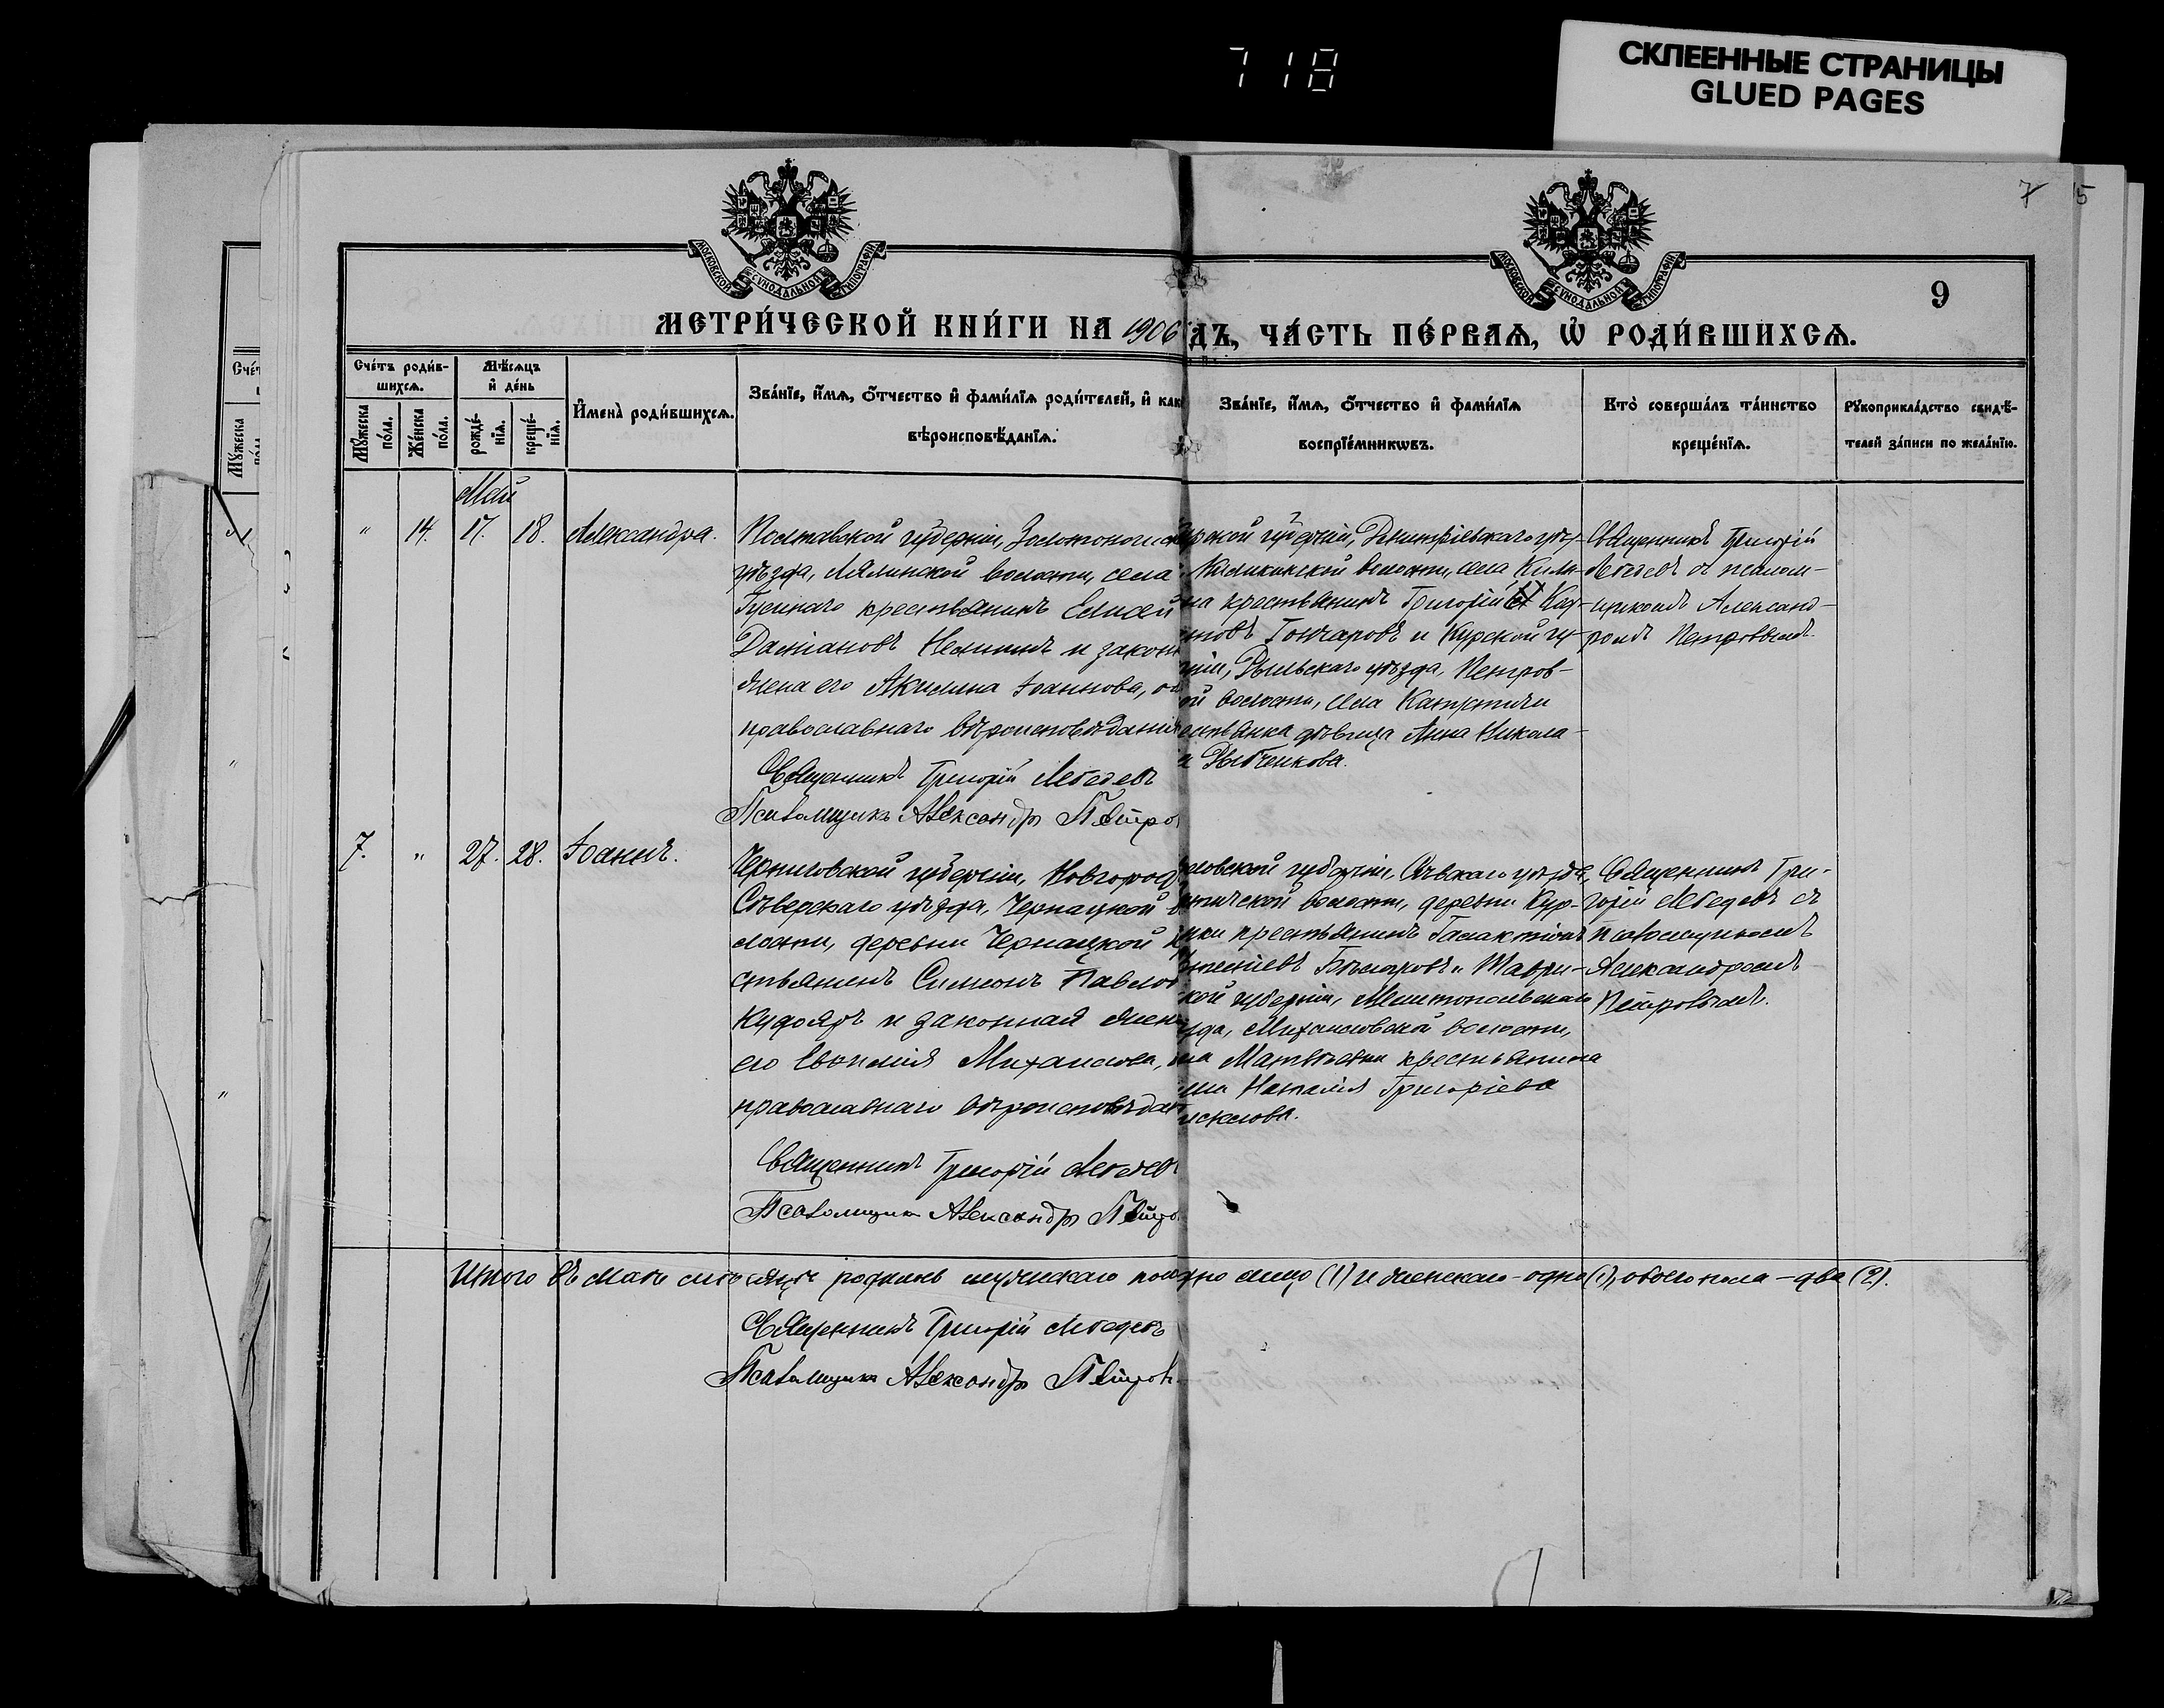 718
СКЛЕЕННЫЕ СТРАНИЦЫ
GLUED PAGES
7 5
9
МЕТРИ́ЧЕСКОЙ КНИ́ГИ НА 1906
ДЪ, ЧА́СТЬ ПЕ́РВАѦ, Ѡ҆ РОДИ́ВШИХСѦ.
Сче́тъ роди́в-
шихсѧ.
Му́жеска по́ла.
Же́нска по́ла.
Мѣ́сѧцъ и҆ де́нь
рожде́-нїѧ.
креще́-нїѧ.
И҆мена̀ роди́вшихсѧ.
Зва́нїе, и҆́мѧ, ѻ҆́тчество и҆ фами́лїѧ роди́телей, и҆ как
вѣроисповѣ́данїѧ.
Зва́нїе, и҆́мѧ, ѻ҆́тчество и҆ фами́лїѧ
воспрїе́мникѡвъ.
Кто̀ соверша́лъ та́инство
креще́нїѧ.
Рꙋкоприкла́дство свидѣ́-
телей за́писи по жела́нїю.
Май
" 14. 17. 18. Александра.
Полтавской губерніи, Золотонош
уѣзда, Лялинской волости, села
Гусинаго крестьянинъ Елисей
Даміановъ и закон
жена его Акилина Іоаннова,
православнаго вѣроисповѣданія
Священникъ Григорій Лебедевъ
Псаломщикъ Александръ Петро
рской губерніи, Дмитріевскаго уѣз-
Киликинской волости, села Кили-
на крестьянинъ Григорій
Гончаровъ и Курской гу-
рніи, Рыльскаго уѣзда, Петров-
ой волости, села
естьянка дѣвица Анна Никола-
Рыбченкова.
Священникъ Григорій
Лебедевъ съ псалом-
щикомъ Александ-
ромъ Петровымъ.
7. " 27. 28. Іоаннъ.
Черниговской губерніи, Новгород
Сѣверскаго уѣзда, Чернацкой в
лости, деревни Чернацкой
стьянинъ Симеонъ Павлов
Кудояръ и законная жена
его Евфимія Михаилова,
православнаго вѣроисповѣдан
Священникъ Григорій Лебедев
Псаломщикъ Александръ Петро
ловской губерніи, Сѣвскаго уѣзда,
волости, деревни Кур-
крестьянинъ Галактіонъ
и Таври-
кой губерніи, Мелитопольскаго
зда, Михайловской волости,
ла Матвѣевки крестьянина
Наталія Григоріева
Священникъ Гри-
горій Лебедевъ съ
псаломщикомъ
Александромъ
Петровымъ.
Итого въ маѣ мѣсяцѣ родилось мужскаго пола одно лицо (1) и женскаго - одно (1), обоего пола - два (2).
Священникъ Григорій Лебедевъ
Псаломщикъ Александръ Петров